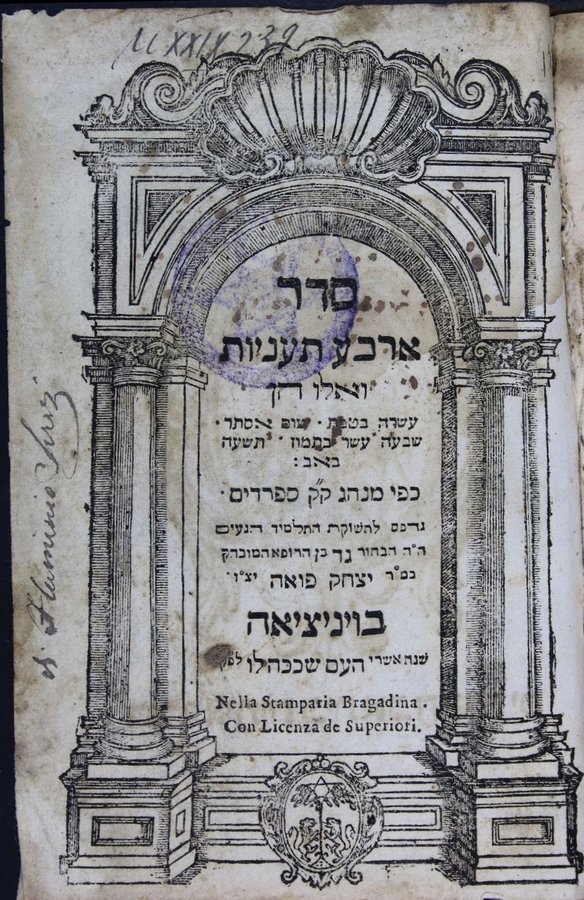 סדר
ארבע תעניות
ואלו הן
עשרה בטבת · צום אסתר ·
שבעה עשר בתמוז · תשעה
באב :
כפי מנהג ק״ק ספרדים ·
נדפס לתשוקת התלמיד הנעים
ה״ה הבחור גד בן הרופא המובהק
כמ״ר יצחק פואה יצ״ו ·
בויניציאה
שנת אשרי העם שככה לו לפק
Nella Stamparia Bragadina .
Con Licenza de Superiori.
Flaminio